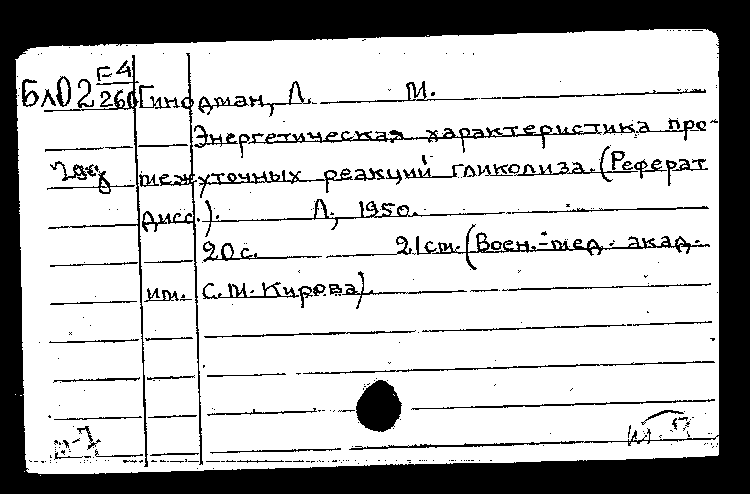 БлО2 Е-4/260 Гинодман, Л. М.
Энергетическая характеристика про-
межуточных реакций гликолиза. (Реферат
дисс.). Л., 1950.
20 с. 21 см. (Воен.-мед. акад.
им. С.М. Кирова).